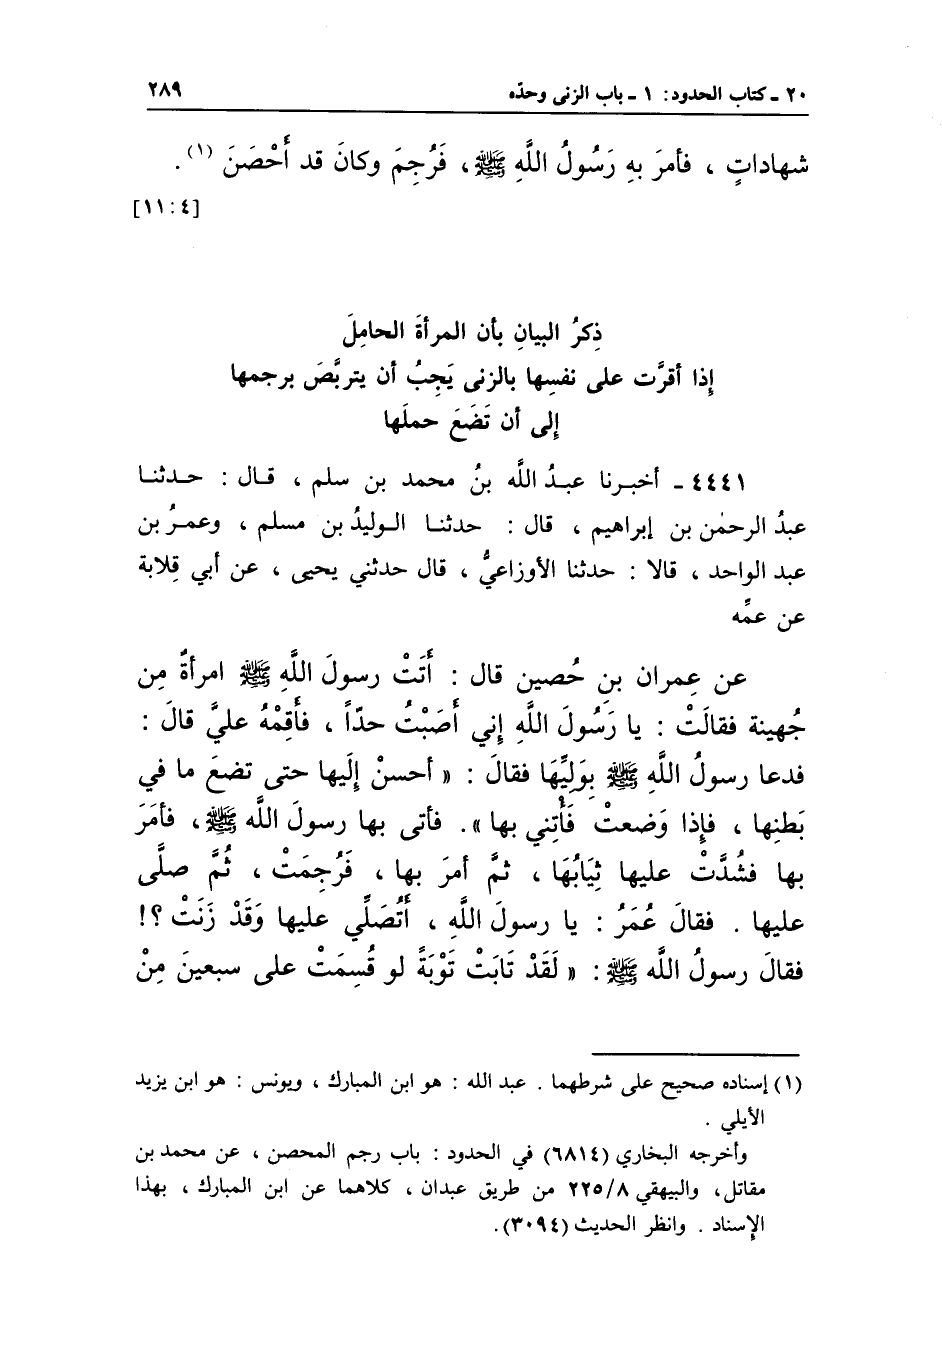 ٢٠ ـ كتاب الحدود: ١ ـ باب الزنى وحدّه ٢٨٩
شهاداتٍ ، فأمرَ بهِ رَسُولُ اللَّهِ ﷺ، فَرُجِمَ وكانَ قد أَحْصَنَ (١) .
[٤: ١١]
ذِكرُ البيانِ بأن المرأةَ الحامِلَ
إِذا أقرَّت على نفسِها بالزنى يَجِبُ أن يتربَّصَ برجمها
إلى أن تَضَعَ حملَها
٤٤٤١ ـ أخبـرنا عبـدُ اللَّه بنُ محمد بن سلم ، قـال : حـدثنـا
عبدُ الرحمٰن بن إبراهيم ، قال : حدثنـا الـوليدُ بن مسلم ، وعمـرُ بن
عبد الواحد ، قالا : حدثنا الأوزاعيُّ ، قال حدثني يحيى ، عن أبي قِلابة
عن عمِّه
عن عِمران بنِ حُصين قال : أَتَتْ رسولَ اللَّهِ ﷺ امرأةٌ مِن
جُهينة فقالَتْ : يا رَسُولَ اللَّهِ إني أَصَبْتُ حدّاً ، فأَقِمْهُ عليَّ قالَ :
فدعا رسولُ اللَّهِ ﷺ بِوَلِيِّهَا فقالَ : « أحسنْ إِلَيها حتى تضعَ ما في
بَطنِها ، فإِذا وَضعتْ فَأْتِني بها ». فأتى بها رسولَ اللَّه ﷺ، فأمَرَ
بها فشُدَّتْ عليها ثِيَابُهَا ، ثمَّ أمرَ بها ، فَرُجِمَتْ ، ثُمَّ صلَّى
عليها . فقالَ عُمَرُ : يا رسولَ اللَّهِ ، أَتُصَلِّي عليها وَقَدْ زَنَتْ ؟!
فقالَ رسولُ اللَّه ﷺ : « لَقَدْ تَابَتْ تَوْبَةً لو قُسِمَتْ على سبعينَ مِنْ
(١) إسناده صحيح على شرطهما . عبد الله : هو ابن المبارك ، ويونس : هو ابن يزيد
الأيلي .
وأخرجه البخاري (٦٨١٤) في الحدود : باب رجم المحصن ، عن محمد بن
مقاتل، والبيهقي ٢٢٥/٨ من طريق عبدان ، كلاهما عن ابن المبارك ، بهذا
الإسناد . وانظر الحديث (٣٠٩٤).